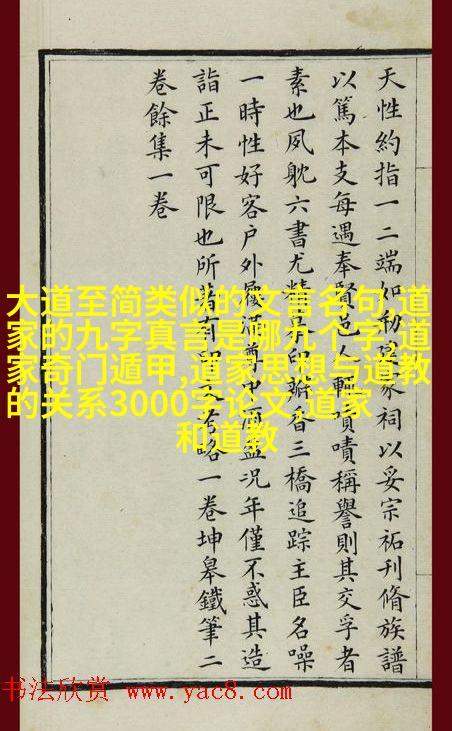 天性約指一二端如家祠以妥宗祏刊脩族譜
以篤本支每遇奉賢邑人輒嘖嘖稱譽則其交孚者
素也夙躭六書尤精篆印瓣香三橋追踪主臣名噪
一時性好客户外屨滿樽中酒盈況年僅不惑其造
詣正未可限也所著有印文考略一卷坤皋鐵筆二
卷餘集一卷
大道至简类似的文言名句,道
家的九字真言是哪九个字,道
家奇门遁甲,道家思想与道教
的关系3000字论文,道家
和道教
书法欣赏 www.yac8.com